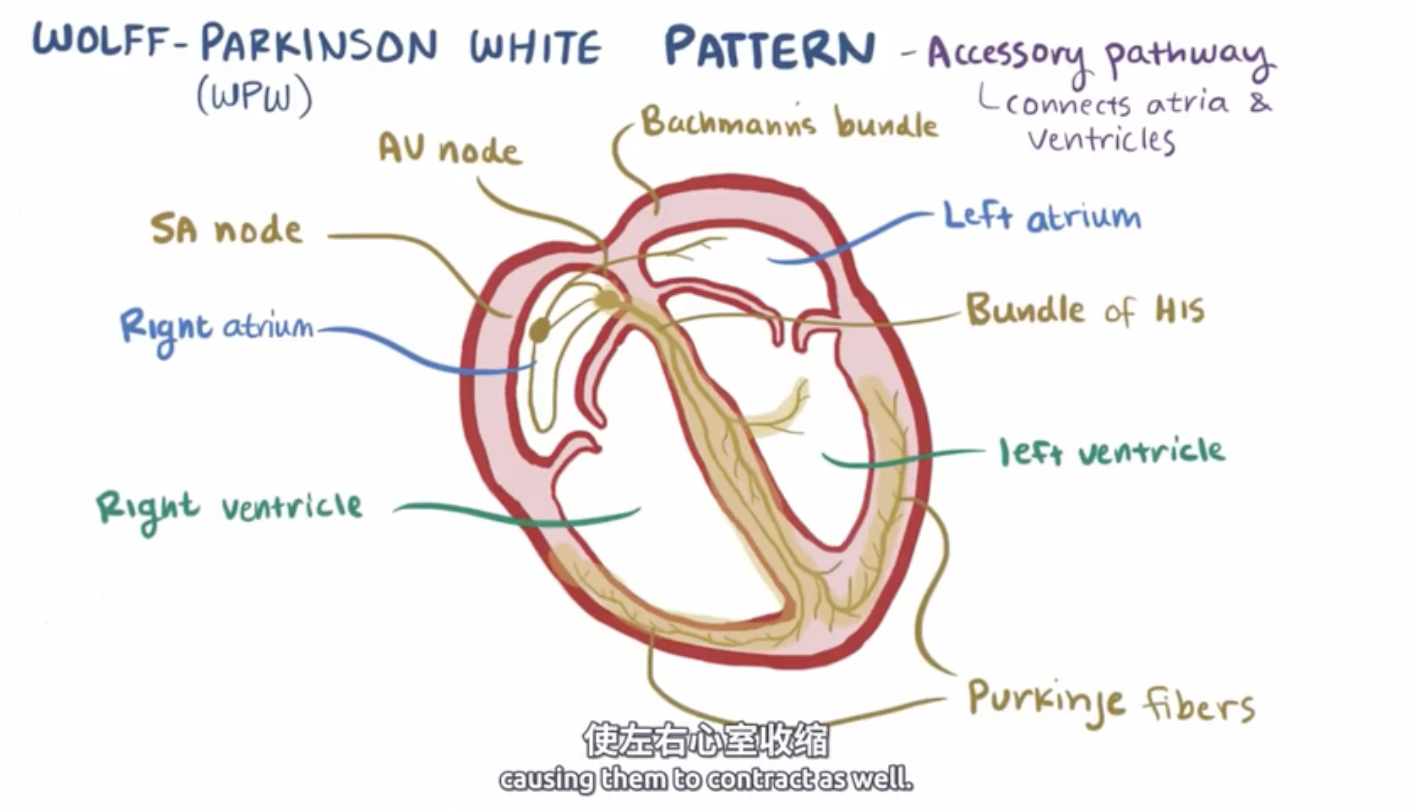 WOLFF-PARKINSON WHITE PATTERN - Accessory pathway
(WPW)
connects atria &
ventricles
Bachmann's bundle
AV node
SA node
Left atrium
Right atrium
Bundle of HIS
left ventricle
Right ventricle
Purkinje fibers
使左右心室收缩
causing them to contract as well.